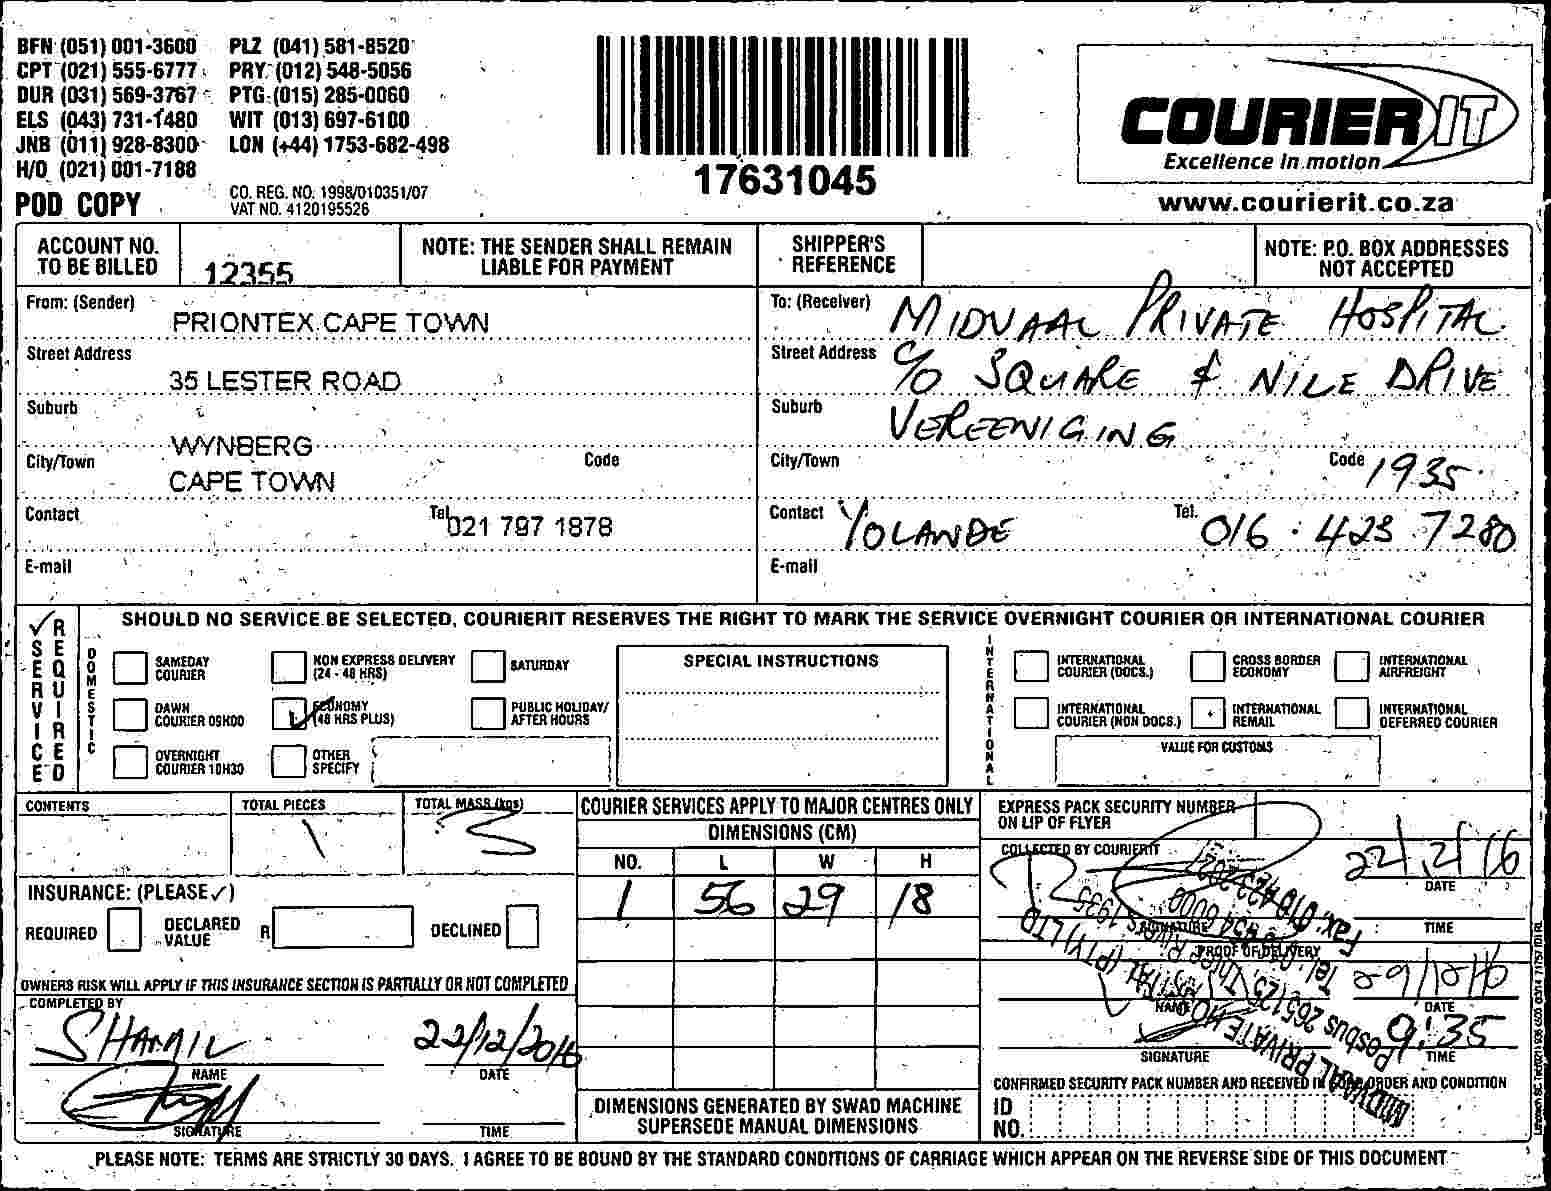 BFN (051) 001-3600 PLZ (041) 581-8520
CPT (021) 555-6777 PRY (012) 548-5056
DUR (031) 569-3767 PTG (015) 285-0060
ELS (043) 731-1480 WIT (013) 697-6100
JNB (011) 928-8300 LON (+44) 1753-682-498
H/O (021) 001-7188
POD COPY
CO. REG. NO. 1998/010351/07
VAT NO. 4120195526
17631045
COURIER IT
Excellence in motion
www.courierit.co.za
ACCOUNT NO. TO BE BILLED 12355
NOTE: THE SENDER SHALL REMAIN LIABLE FOR PAYMENT
SHIPPER'S REFERENCE
NOTE: P.O. BOX ADDRESSES NOT ACCEPTED
From: (Sender) PRIONTEX CAPE TOWN
Street Address 35 LESTER ROAD
Suburb WYNBERG
City/Town CAPE TOWN Code
Contact Tel. 021 797 1878
E-mail
To: (Receiver) MIDVAAL PRIVATE HOSPITAL
Street Address C/O SQUARE & NILE DRIVE
Suburb VEREENIGING
City/Town Code 1935
Contact YOLANDE Tel. 016 · 423 7280
E-mail
SERVICE REQUIRED
SHOULD NO SERVICE BE SELECTED, COURIERIT RESERVES THE RIGHT TO MARK THE SERVICE OVERNIGHT COURIER OR INTERNATIONAL COURIER
DOMESTIC
SAMEDAY COURIER
NON EXPRESS DELIVERY (24 - 48 HRS)
SATURDAY
DAWN COURIER 09H00
ECONOMY (48 HRS PLUS)
PUBLIC HOLIDAY/ AFTER HOURS
OVERNIGHT COURIER 10H30
OTHER SPECIFY
SPECIAL INSTRUCTIONS
INTERNATIONAL
INTERNATIONAL COURIER (DOCS.)
CROSS BORDER ECONOMY
INTERNATIONAL AIRFREIGHT
INTERNATIONAL COURIER (NON DOCS.)
INTERNATIONAL REMAIL
INTERNATIONAL DEFERRED COURIER
VALUE FOR CUSTOMS
CONTENTS
TOTAL PIECES 1
TOTAL MASS (kgs) 3
INSURANCE: (PLEASE ✓)
REQUIRED DECLARED VALUE R DECLINED
OWNERS RISK WILL APPLY IF THIS INSURANCE SECTION IS PARTIALLY OR NOT COMPLETED
COMPLETED BY
22/12/2016
NAME DATE
SIGNATURE TIME
COURIER SERVICES APPLY TO MAJOR CENTRES ONLY
DIMENSIONS (CM)
NO. L W H
1 56 29 18
DIMENSIONS GENERATED BY SWAD MACHINE
SUPERSEDE MANUAL DIMENSIONS
EXPRESS PACK SECURITY NUMBER ON LIP OF FLYER
COLLECTED BY COURIERIT
DATE
SIGNATURE TIME
PROOF OF DELIVERY
NAME DATE
9:35
SIGNATURE TIME
MIDVAAL PRIVATE HOSPITAL (PTY) LTD
CONFIRMED SECURITY PACK NUMBER AND RECEIVED IN GOOD ORDER AND CONDITION
ID NO.
PLEASE NOTE: TERMS ARE STRICTLY 30 DAYS. I AGREE TO BE BOUND BY THE STANDARD CONDITIONS OF CARRIAGE WHICH APPEAR ON THE REVERSE SIDE OF THIS DOCUMENT